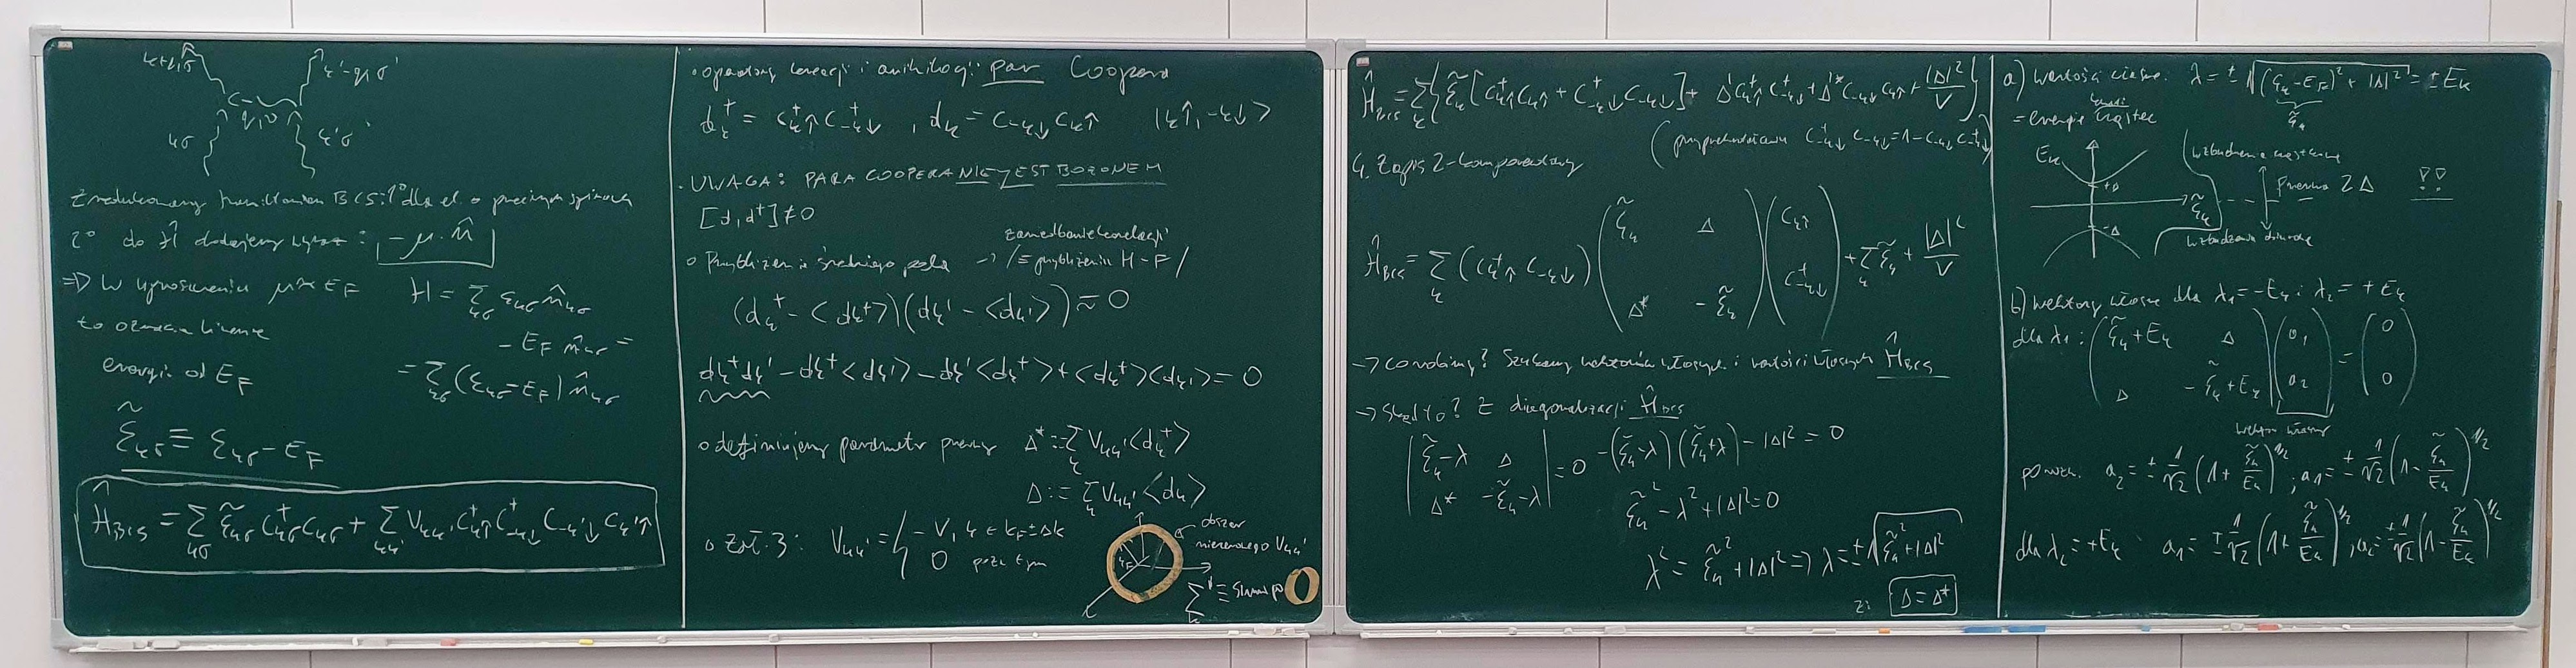 k+q,σ
k'-q,σ'
q,ν
kσ
k'σ'
Zredukowany hamiltonian BCS: 1° dla el. o przeciwnych spinach
2° do Ĥ dodajemy wyraz: -μ·n̂
=> W wyprowadzeniu μ≈E_F
to oznacza liczenie
energii od E_F
H = Σ_kσ ε_kσ n̂_kσ
- E_F n̂_kσ =
= Σ_kσ (ε_kσ - E_F) n̂_kσ
ε̃_kσ ≡ ε_kσ - E_F
Ĥ_BCS = Σ_kσ ε̃_kσ c⁺_kσ c_kσ + Σ_kk' V_kk' c⁺_k↑ c⁺_-k↓ c_-k'↓ c_k'↑
• operatory kreacji i anihilacji par Coopera
d_k⁺ = c⁺_k↑ c⁺_-k↓ , d_k = c_-k↓ c_k↑ |k↑,-k↓>
• UWAGA: PARA COOPERA NIE JEST BOZONEM
[d,d⁺]≠0
zaniedbanie korelacji
o Przybliżenie średniego pola -> /≡ przybliżenie H-F/
(d_k⁺ - <d_k⁺>)(d_k' - <d_k'>) ≈ 0
d_k⁺d_k' - d_k⁺<d_k'> - d_k'<d_k⁺> + <d_k⁺><d_k'> = 0
o definiujemy parametr przerwy Δ* := Σ_k V_kk' <d_k⁺>
Δ := Σ_k V_kk' <d_k>
o Zał. 3: V_kk' = { -V, k ∈ k_F ± Δk
0 poza tym
k_F
obszar
niezerowego V_kk'
Σ'_k ≡ Suma po
Ĥ_BCS = Σ_k { ε̃_k [c⁺_k↑ c_k↑ + c⁺_-k↓ c_-k↓] + Δ c⁺_k↑ c⁺_-k↓ + Δ* c_-k↓ c_k↑ + |Δ|²/V }
c⁺_-k↓ c_-k↓ = 1 - c_-k↓ c⁺_-k↓
4. Zapis 2-komponentowy
Ĥ_BCS = Σ_k (c⁺_k↑ c_-k↓) ( ε̃_k Δ ; Δ* -ε̃_k ) ( c_k↑ ; c⁺_-k↓ ) + Σ_k ε̃_k + |Δ|²/V
-> co robimy? Szukamy wektorów własnych i wartości własnych Ĥ_BCS
-> Skąd to? Z diagonalizacji Ĥ_BCS
| ε̃_k-λ Δ ; Δ* -ε̃_k-λ | = 0
-(ε̃_k-λ)(ε̃_k+λ) - |Δ|² = 0
ε̃_k² - λ² + |Δ|² = 0
λ² = ε̃_k² + |Δ|² => λ = ±√(ε̃_k² + |Δ|²)
Δ = Δ*
a) wartości własne. λ = ±√((ε_k - E_F)² + |Δ|²) = ±E_k
ε̃_k
= energie kwazicząstec
E_k
+Δ
-Δ
ε̃_k
wzbudzenia cząstkowe
Przerwa 2Δ !!
wzbudzenia dziurowe
b) wektory własne dla λ₁ = -E_k i λ₂ = +E_k
dla λ₁: ( ε̃_k+E_k Δ ; Δ -ε̃_k+E_k ) ( a₁ ; a₂ ) = ( 0 ; 0 )
wektor własny
a₂ = ± 1/√2 (1 + ε̃_k/E_k)^1/2 ; a₁ = ± 1/√2 (1 - ε̃_k/E_k)^1/2
dla λ₂ = +E_k a₁ = ± 1/√2 (1 + ε̃_k/E_k)^1/2 , a₂ = ± 1/√2 (1 - ε̃_k/E_k)^1/2